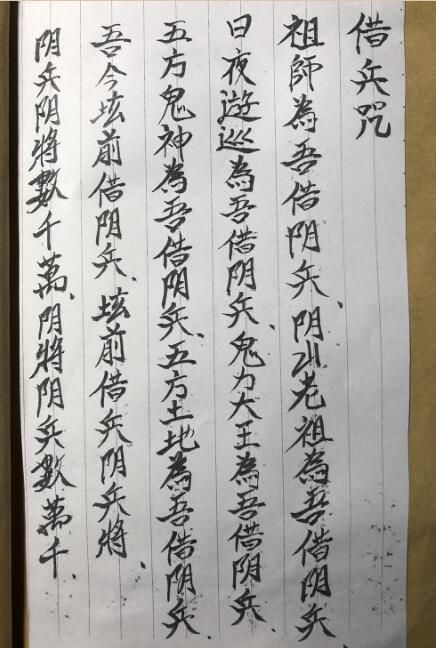 借兵咒
祖師為吾借阴兵、阴山老祖為吾借阴兵、
日夜遊巡為吾借阴兵、鬼力大王為吾借阴兵、
五方鬼神為吾借阴兵、五方土地為吾借阴兵、
吾今坛前借阴兵、坛前借兵阴兵將、
阴兵阴將數千萬、阴將阴兵數萬千、